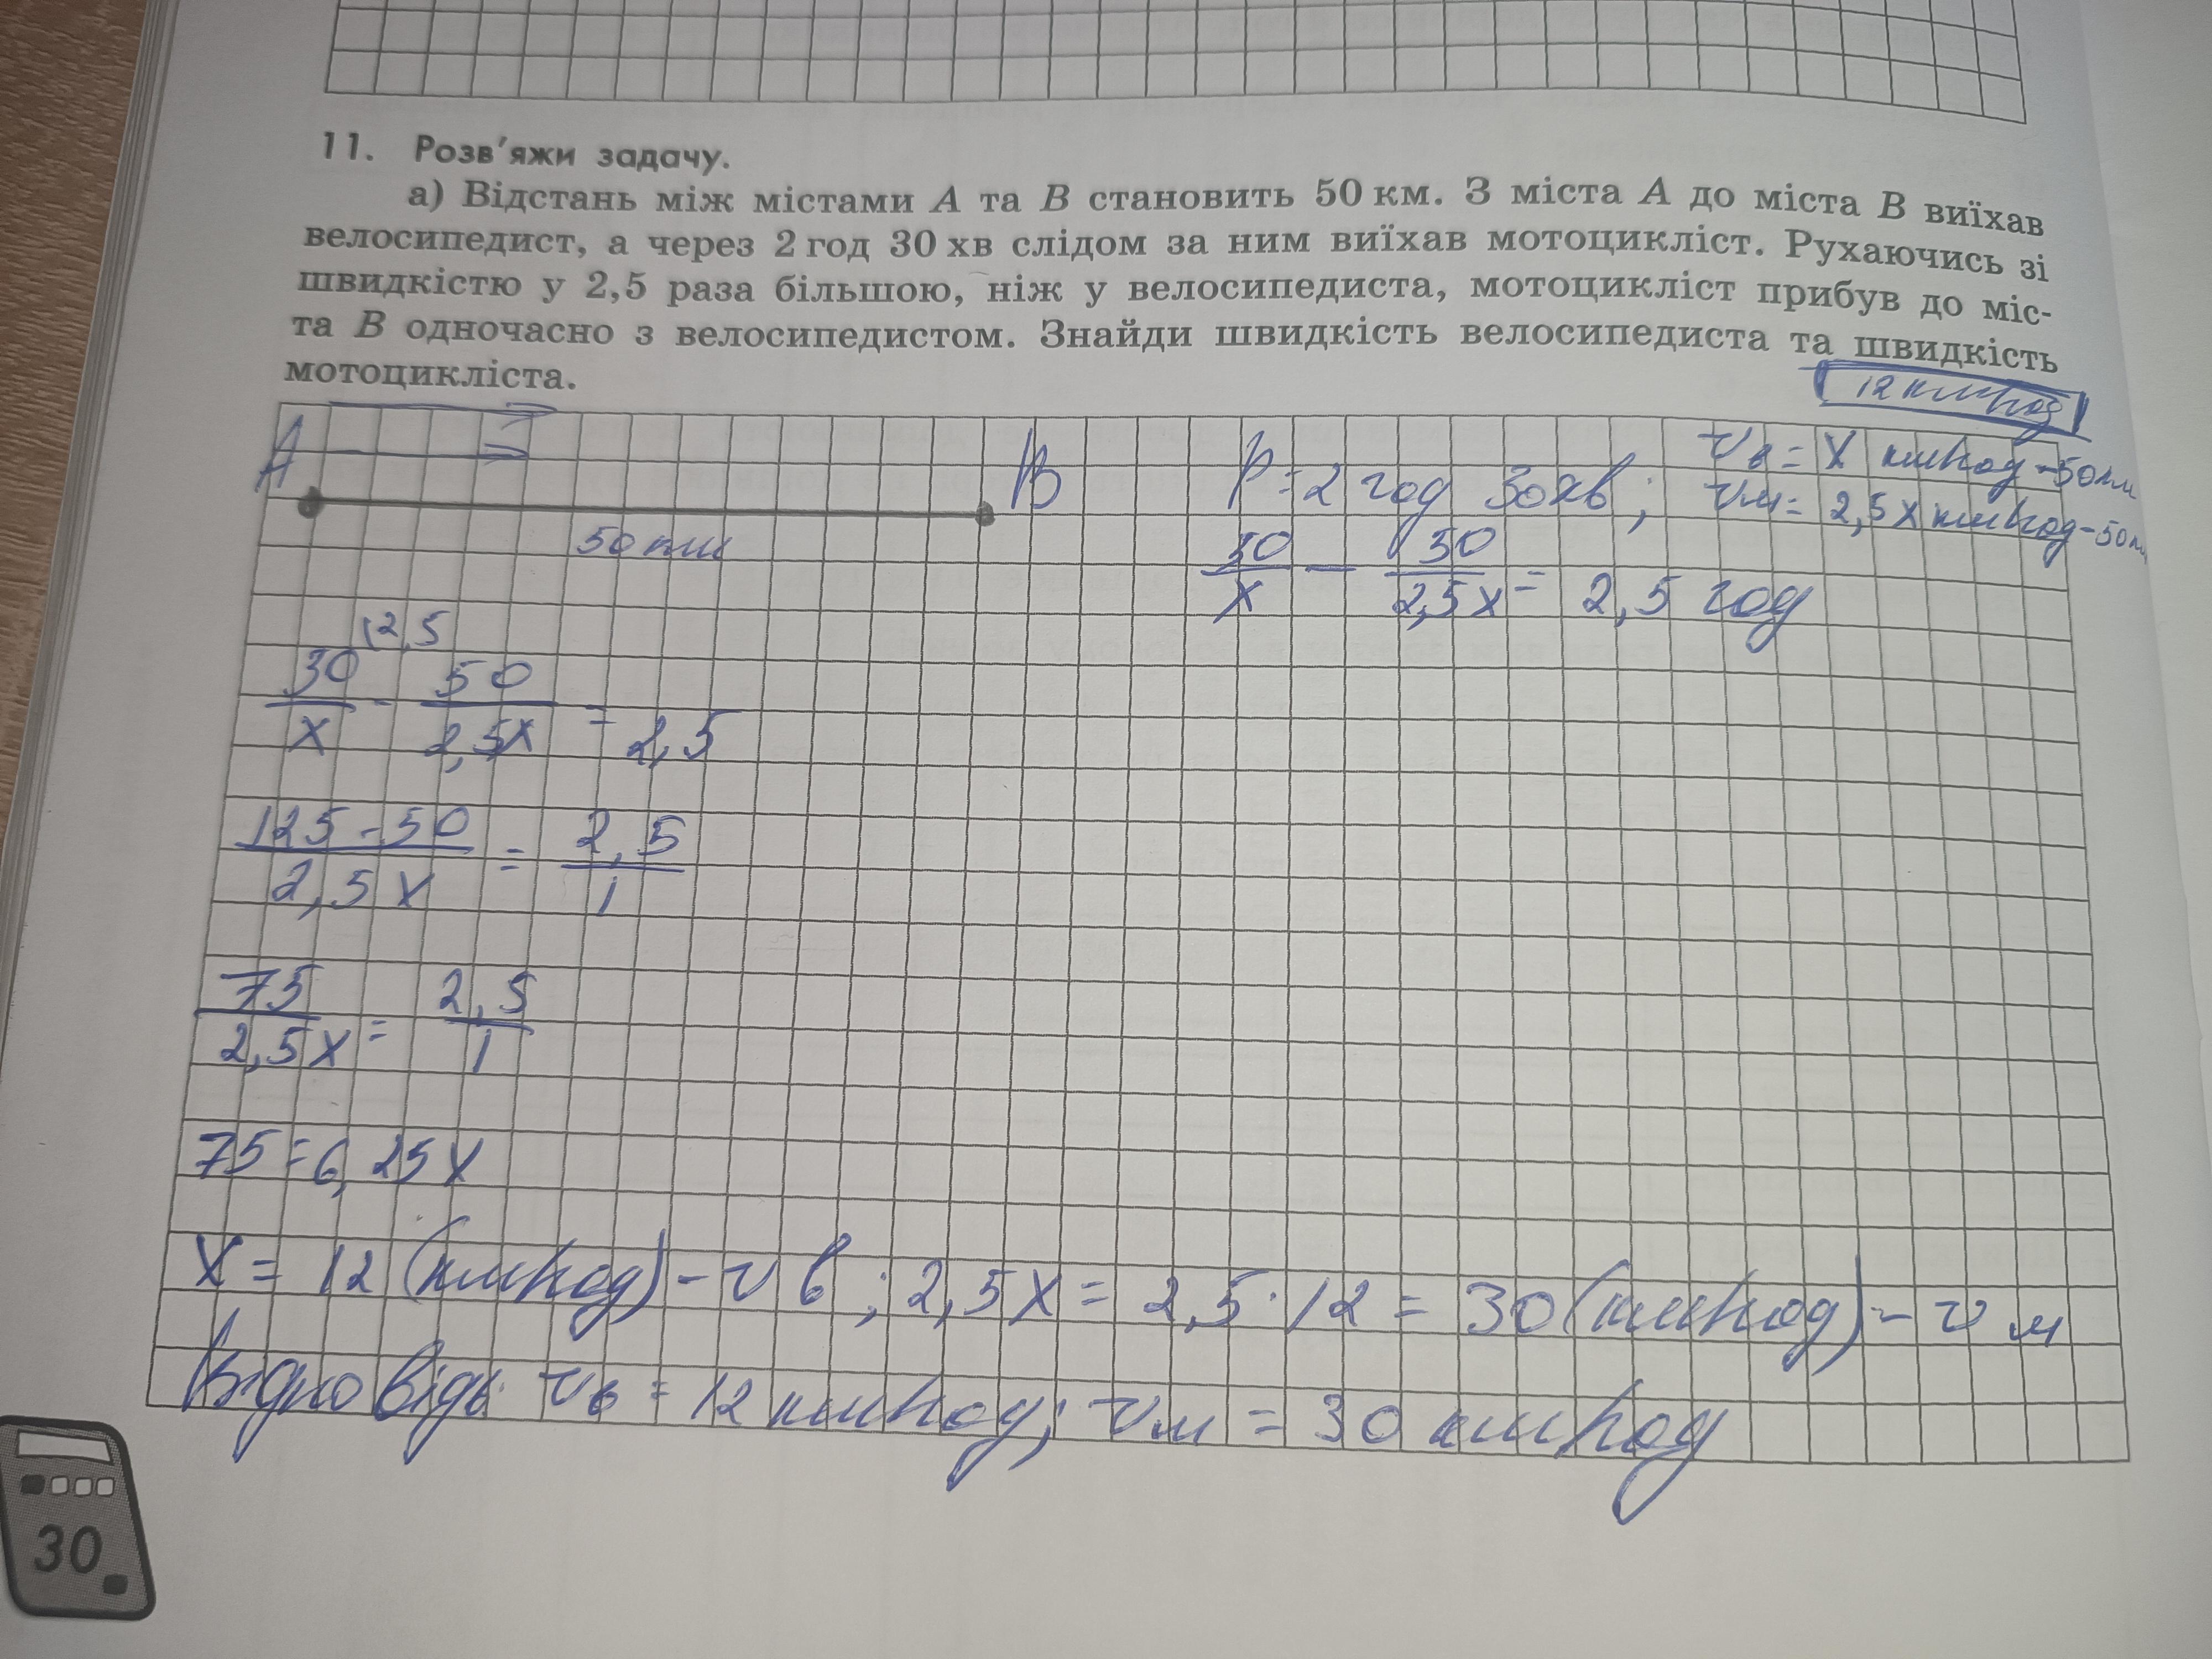 11. Розв'яжи задачу.
а) Відстань між містами A та B становить 50 км. З міста A до міста B виїхав
велосипедист, а через 2 год 30 хв слідом за ним виїхав мотоцикліст. Рухаючись зі
швидкістю у 2,5 раза більшою, ніж у велосипедиста, мотоцикліст прибув до міс-
та B одночасно з велосипедистом. Знайди швидкість велосипедиста та швидкість
мотоцикліста.
12 км/год
A B
50 км
P = 2 год 30 хв; vв = x км/год - 50 км
vм = 2,5x км/год - 50 км
50/x - 50/2,5x = 2,5 год
50/x \2,5 - 50/2,5x = 2,5
125 - 50/2,5x = 2,5/1
75/2,5x = 2,5/1
75 = 6,25x
x = 12 (км/год) - v в; 2,5x = 2,5 · 12 = 30 (км/год) - v м
Відповідь: vв = 12 км/год; vм = 30 км/год
30